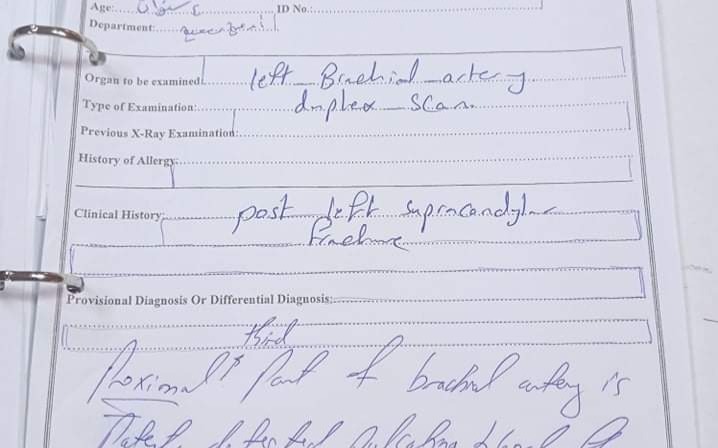 Age:
ID No.:
Department:
Organ to be examined: left Brachial artery
Type of Examination: duplex scan
Previous X-Ray Examination:
History of Allergy:
Clinical History: post left supracondylar
fracture
Provisional Diagnosis Or Differential Diagnosis:
third
Proximal part of brachial artery is
Patent, detected pulsating blood